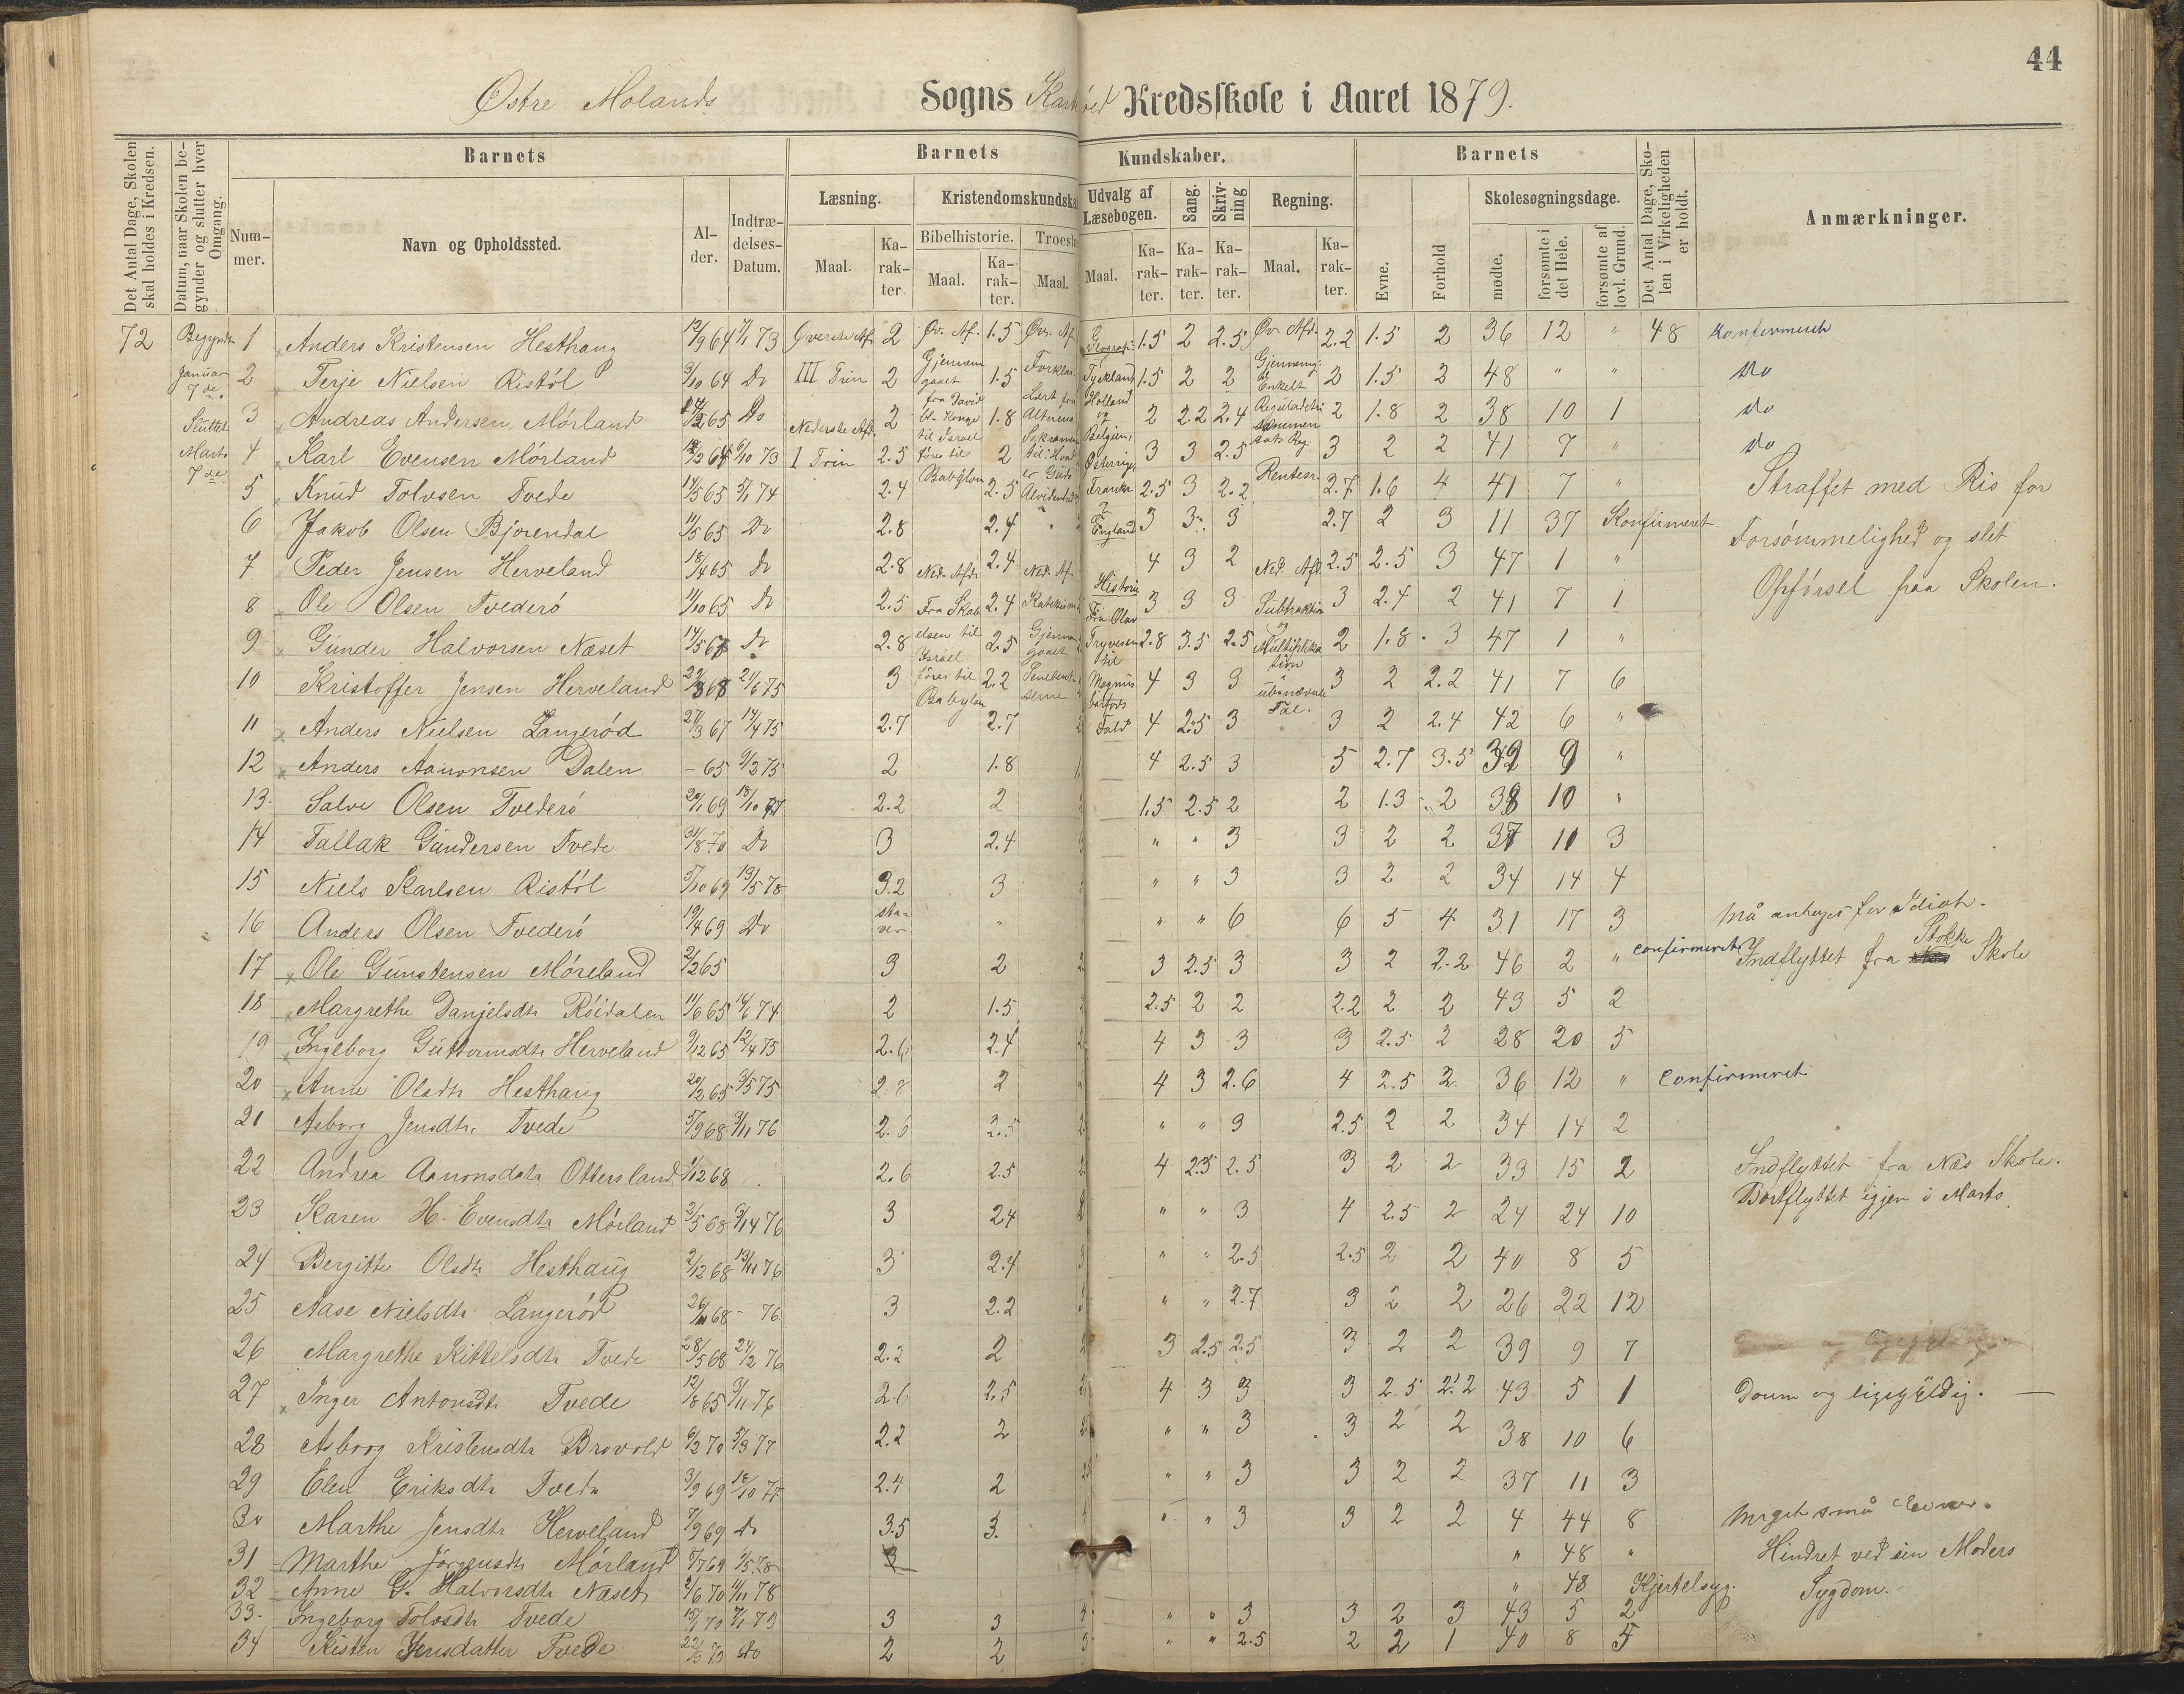 44
Østre Molands Sogns Kredsskole i Aaret 1879.
Det Antal Dage, Skolen skal holdes i Kredsen.
Datum, naar Skolen begynder og slutter hver Omgang.
Barnets
Nummer.
Navn og Opholdssted.
Alder.
Indtrædelses-Datum.
Barnets Kundskaber.
Læsning.
Maal.
Karakter.
Bibelhistorie.
Maal.
Karakter.
Maal.
Udvalg af Læsebogen.
Maal.
Karakter.
Sang.
Karakter.
Skrivning
Karakter.
Regning.
Maal.
Karakter.
Barnets
Evne.
Forhold
Skolesøgningsdage.
mødte.
forsømte i det Hele.
forsømte af lovl. Grund.
Det Antal Dage, Skolen i Virkeligheden er holdt.
Anmærkninger.
72 Begyndt Januar 7de. Sluttet Marts 7de
1 Anders Kristensen Hesthaug 12/9 64 7/1 73 Øverste Afd. 2 Øv. Af. 1.5 Øvr. Af. Geografi: 1.5 2 2.5 Øv. Afd. 2.2 1.5 2 36 12 " 48 Konfirmeret
2 Terje Nielsen Ristøl 9/10 64 Do III Trin 2 1.5 Tyskland 1.5 2 2 2 1.5 2 48 " " Do
3 Andreas Andersen Mørland 65 Do Nederste Afd. 2 1.8 Holland og 2 2.2 2.4 2 1.8 2 38 10 1 do
4 Karl Evensen Mørland 6/10 73 I Trin 2.5 2 Belgien, 3 3 2.5 3 2 2 41 7 " do
5 Knud Tolvsen Tvede 14/5 65 5/1 74 2.4 Babylon 2.5 2.5 3 2.2 Rentesr. 2.7 1.6 4 41 7 " Straffet med Ris for
6 Jakob Olsen Bjorendal 11/5 65 Do 2.8 2.4 England 3 3 3 2.7 2 3 11 37 Konfirmeret. Forsømmelighed og slet
7 Peder Jensen Herveland 18/4 65 Do 2.8 Ned. Afd. 2.4 Ned. Af. Historie 4 3 2 Ned. Afd. 2.5 2.5 3 47 1 " Opførsel paa Skolen.
8 Ole Olsen Tvederø 11/10 65 Do 2.5 2.4 Fra Olav 3 3 3 Subtraktion 3 2.4 2 41 7 1
9 Gunder Halvorsen Næset Do 2.8 2.5 Trygvesen til 2.8 3.5 2.5 Multiplikation 2 1.8 3 47 1 "
10 Kristoffer Jensen Herveland 21/6 75 3 Babylon 2.2 Magnus 4 3 3 3 2 2.2 41 7 6
11 Anders Nielsen Langerød 27/3 67 14/4 75 2.7 2.7 4 2.5 3 3 2 2.4 42 6 "
12 Anders Aanonsen Dalen - 65 9/2 75 2 1.8 4 2.5 3 5 2.7 3.5 39 9 "
13. Salve Olsen Tvederø 20/1 69 18/10 77 2.2 2 1.5 2.5 2 2 1.3 2 38 10 "
14 Tallak Gundersen Tvede 31/8 70 Do 3 2.4 " " 3 3 2 2 37 11 3
15 Niels Karlsen Ristøl 5/10 69 13/5 78 3.2 3 " " 3 3 2 2 34 14 4
16 Anders Olsen Tvederø 19/4 69 Do staver " " " 6 6 5 4 31 17 3 Må antages for Idiot.
17 Ole Gunstensen Møreland 2/2 65 3 2 3 2.5 3 3 2 2.2 46 2 " confirmeret Indflyttet fra Stokke Skole
18 Margrethe Danjelsdtr Røidalen 11/6 65 14/6 74 2 1.5 2.5 2 2 2.2 2 2 43 5 2
19 Ingeborg Guttormsdtr Herveland 9/12 65 12/4 75 2.6 2.4 4 3 3 3 2.5 2 28 20 5
20 Anne Olsdtr Hesthaug 20/2 65 3/5 75 2.8 2 4 3 2.6 4 2.5 2 36 12 " Confirmeret
21 Asborg Jensdtr. Tvede 5/9 68 9/11 76 2.6 2.5 " " 3 2.5 2 2 34 14 2
22 Andrea Aanonsdatr Ottersland 1/12 68 2.6 2.5 4 2.5 2.5 3 2 2 33 15 2 Indflyttet fra Næs Skole. Bortflyttet igjen i Marts
23 Karen H. Evensdtr Mørland 2/5 68 76 3 2.4 " " 3 4 2.5 2 24 24 10
24 Bergitte Olsdtr Hesthaug 2/12 68 13/11 76 3 2.4 " " 2.5 2.5 2 2 40 8 5
25 Aase Nielsdtr Langerød 68 - 76 3 2.2 " " 2.7 3 2 2 26 22 12
26 Margrethe Kittelsdtr Tvede 28/5 68 24/2 76 2.2 2 3 2.5 2.5 3 2 2 39 9 7
27 Inger Antonsdtr Tvede 12/8 65 9/11 76 2.6 2.5 4 3 3 3 2.5 2.2 43 5 1 Doven og ligegyldig.
28 Asborg Kristensdtr Brovold 6/2 70 5/3 77 2.2 2 " " 3 3 2 2 38 10 6
29 Elen Eriksdtr Tvede 3/9 69 18/10 77 2.4 2 " " 3 3 2 2 37 11 3
30 Marthe Jensdtr Herveland 7/9 69 Do 3.5 3. " " 3 3 2 2 4 44 8 Meget små Evner.
31 Marthe Jørgensdtr Mørland 3 " 48 " Hindret ved sin Moders
32 Anne G. Halvorsdtr Næset 2/6 70 11/11 78 " 48 Kjertelsyg. Sygdom.
33. Ingeborg Tolvsdtr Tvede 70 7/1 79 3 3 " " 3 3 2 3 43 5 2
34 Kisten Jensdatter Tvede Do 2 2 " " 2.5 2 2 1 40 8 5